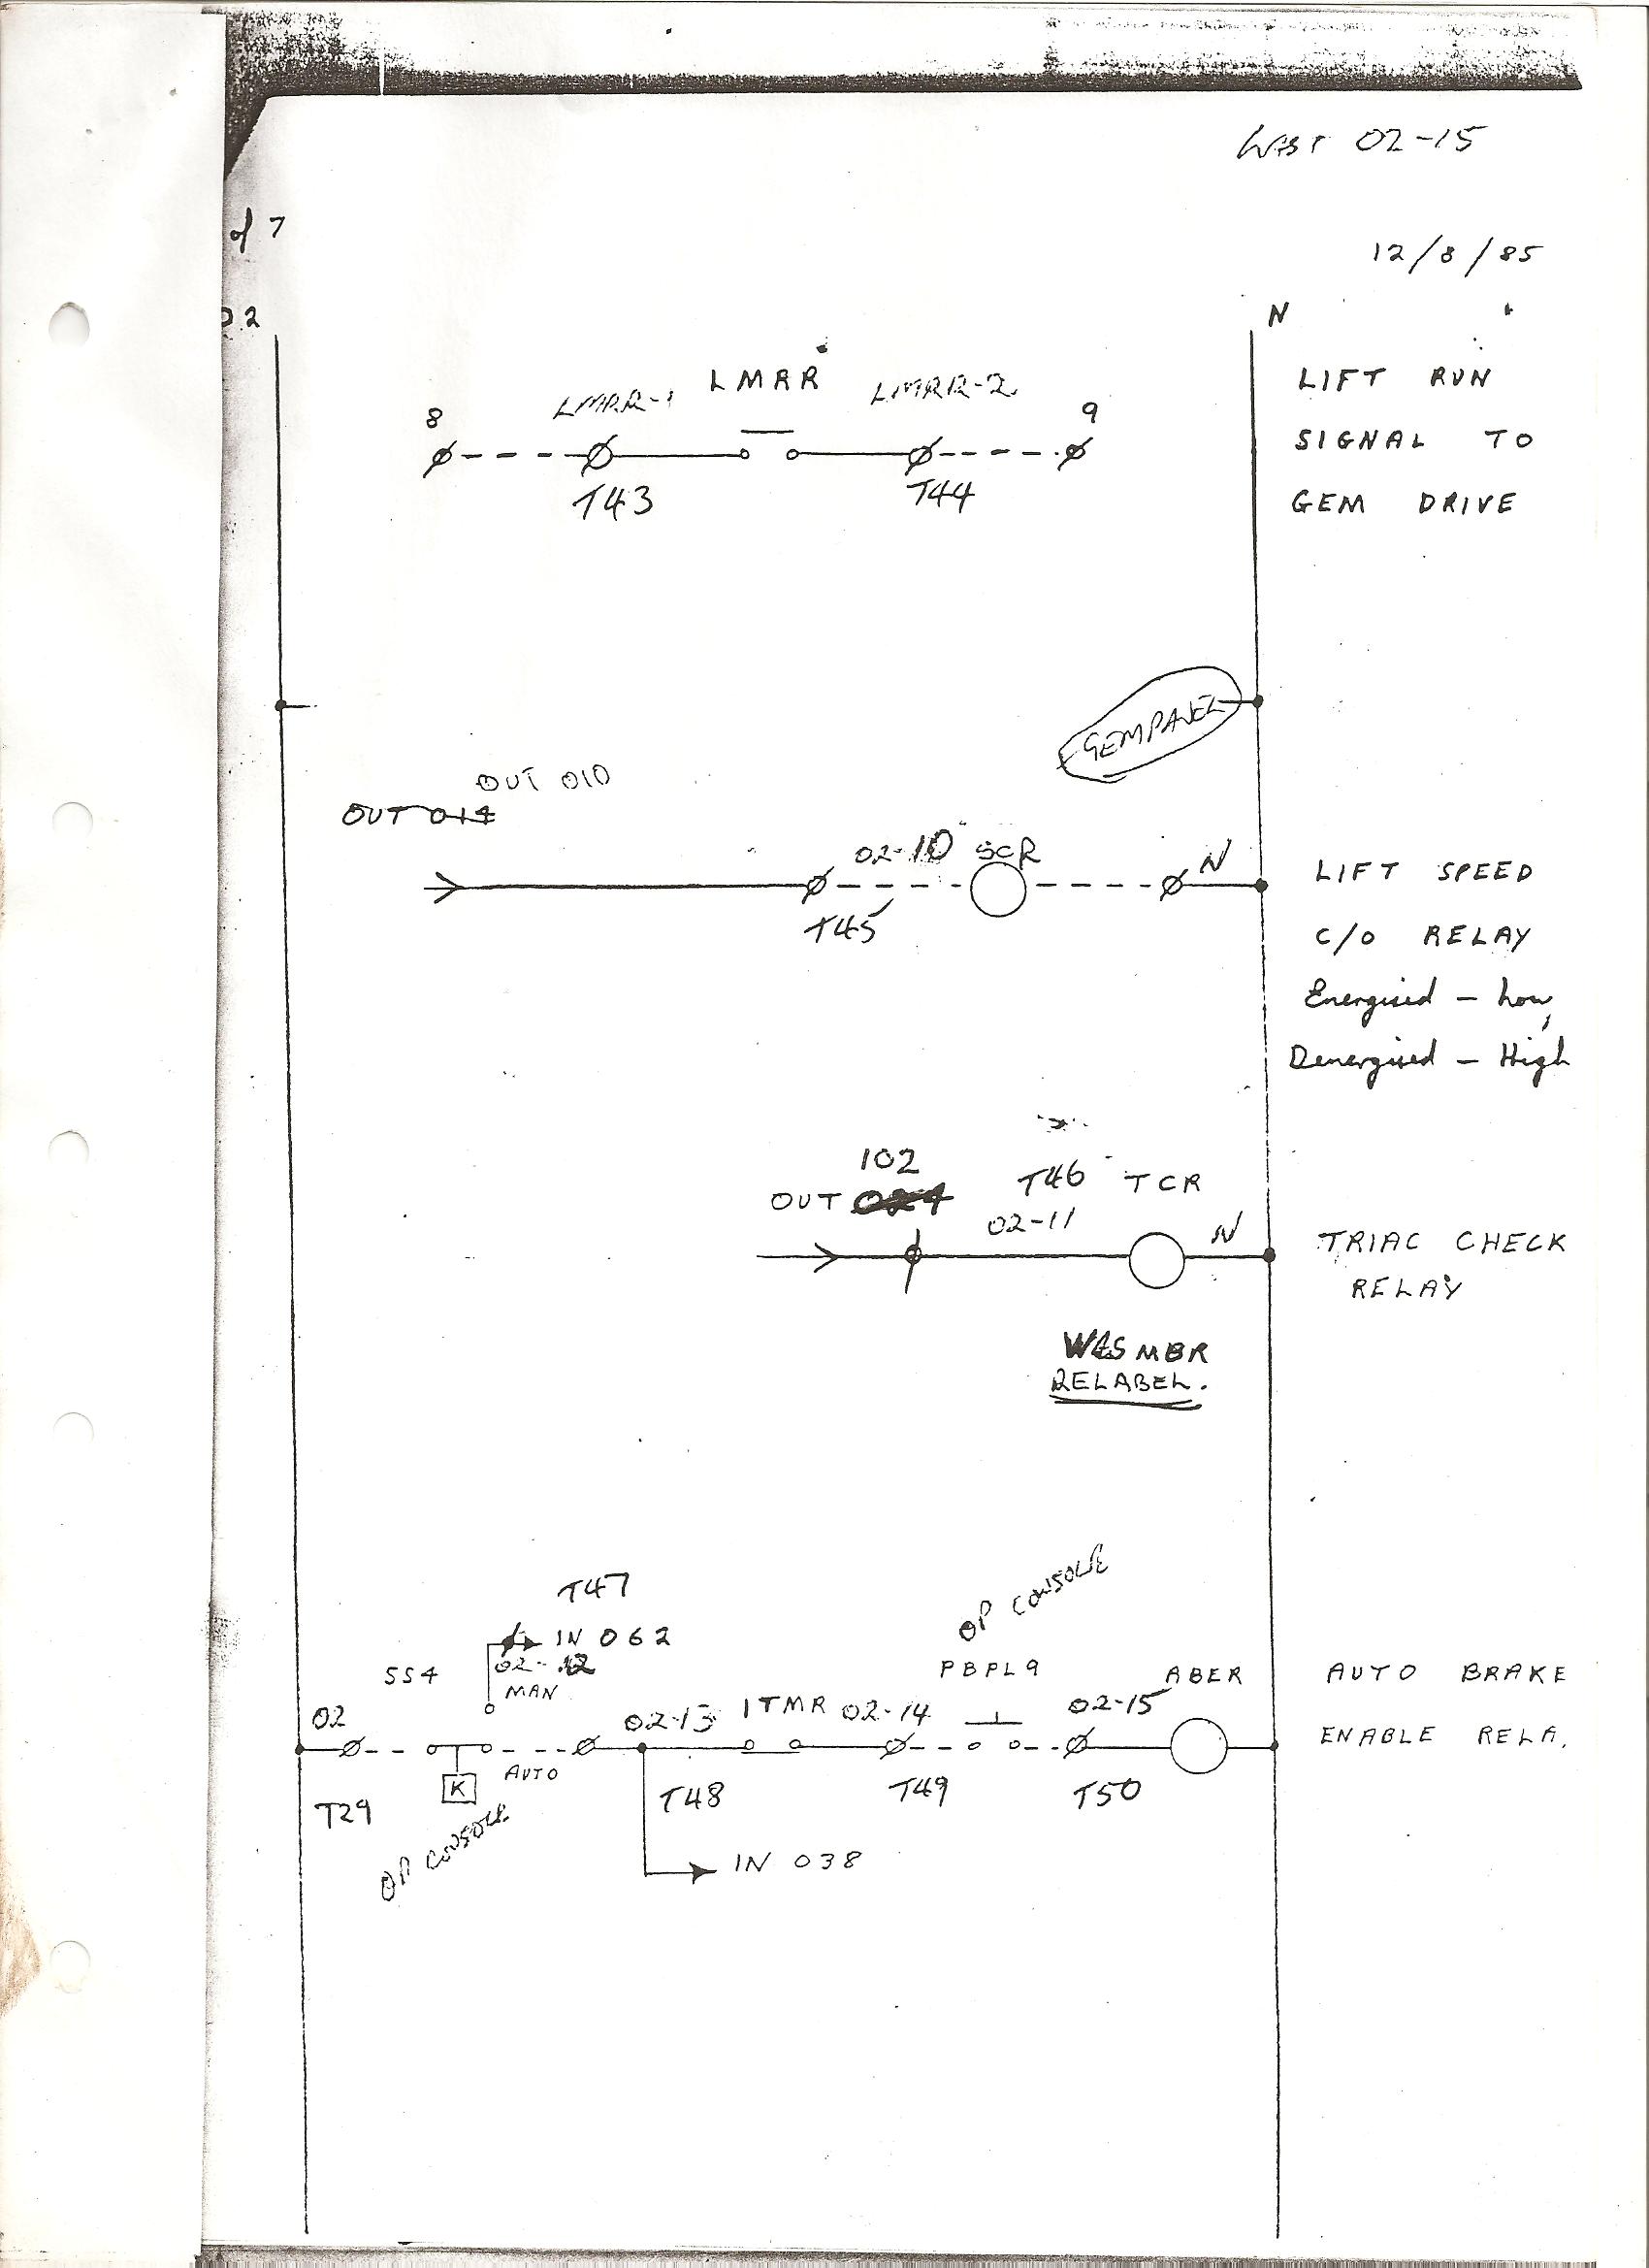 LAST 02-15
of 7
12/8/85
02
N
LMRR-1
LMRR
LMRR-2
8
9
T43
T44
LIFT RUN
SIGNAL TO
GEM DRIVE
GEM PANEL
OUT 010
OUT 014
02-10
SCR
N
T45
LIFT SPEED
C/O RELAY
Energised - Low,
Denergised - High
102
OUT 024
T46
TCR
02-11
N
TRIAC CHECK
RELAY
WAS MBR
RELABEL.
T47
IN 062
02-12
MAN
SS4
OP CONSOLE
PBPL9
ABER
AUTO BRAKE
ENABLE RELA.
02
02-13
ITMR
02-14
02-15
K
AUTO
T29
T48
T49
T50
OP CONSOLE
IN 038